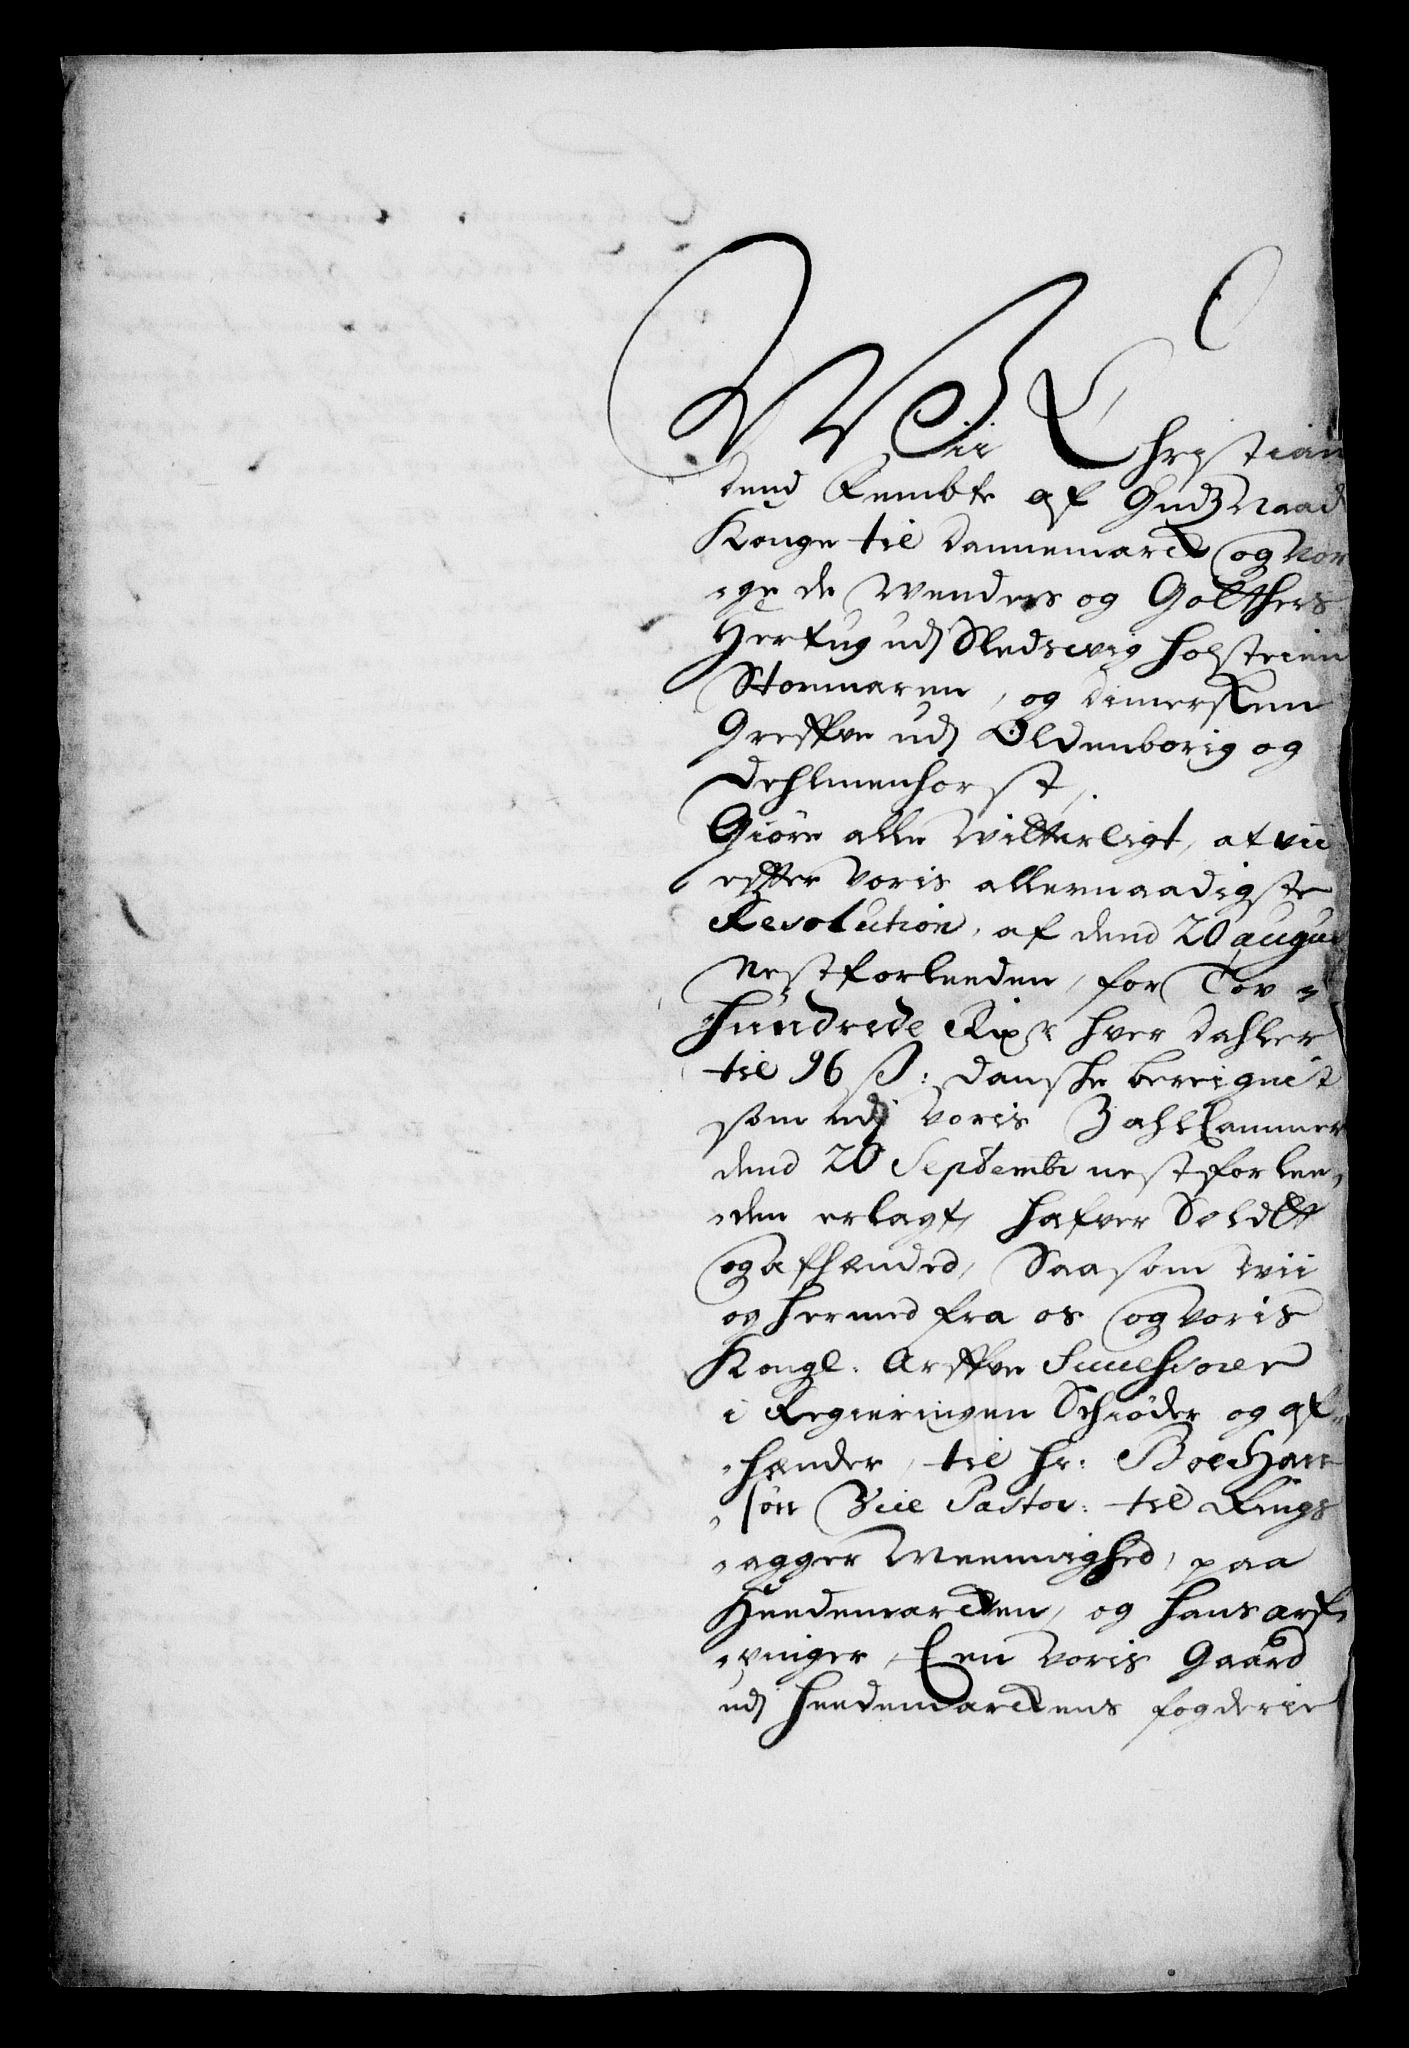 Wii Christian
dend Fembte af Gudz Naade
Konge til Dannemarck og Nor
-ge de Wenders og Gotthers
Hertug udj Sledsvig Holsteen
Stormaren, og Dimersken
Greffve udj Oldenborig og
Dehlmenhorst,
Giöre alle Witterligt, at vii
effter voris allernaadigste
Resolution, af dend 20 augu
Nestforleeden, for Tov
hundrede Rixdr hver dahler
til 96 ß: danske bereignet
som udj voris Zahlkammer
dend 20 Septembr nestforlee-
-den erlagt, hafver Soldtt
og afhænded, Saasom wii
og hermed fra os og voris
Kongl: Arffve Successorer
i Regieringen Schiöder og af-
-hænder, til hr: Boe Han
-sön Vice Pastor: til Rings
-agger Meenighed, paa
Heedemarcken, og hans arf-
-vinger, Een voris Gaard
udj Heedemarckens fogderie